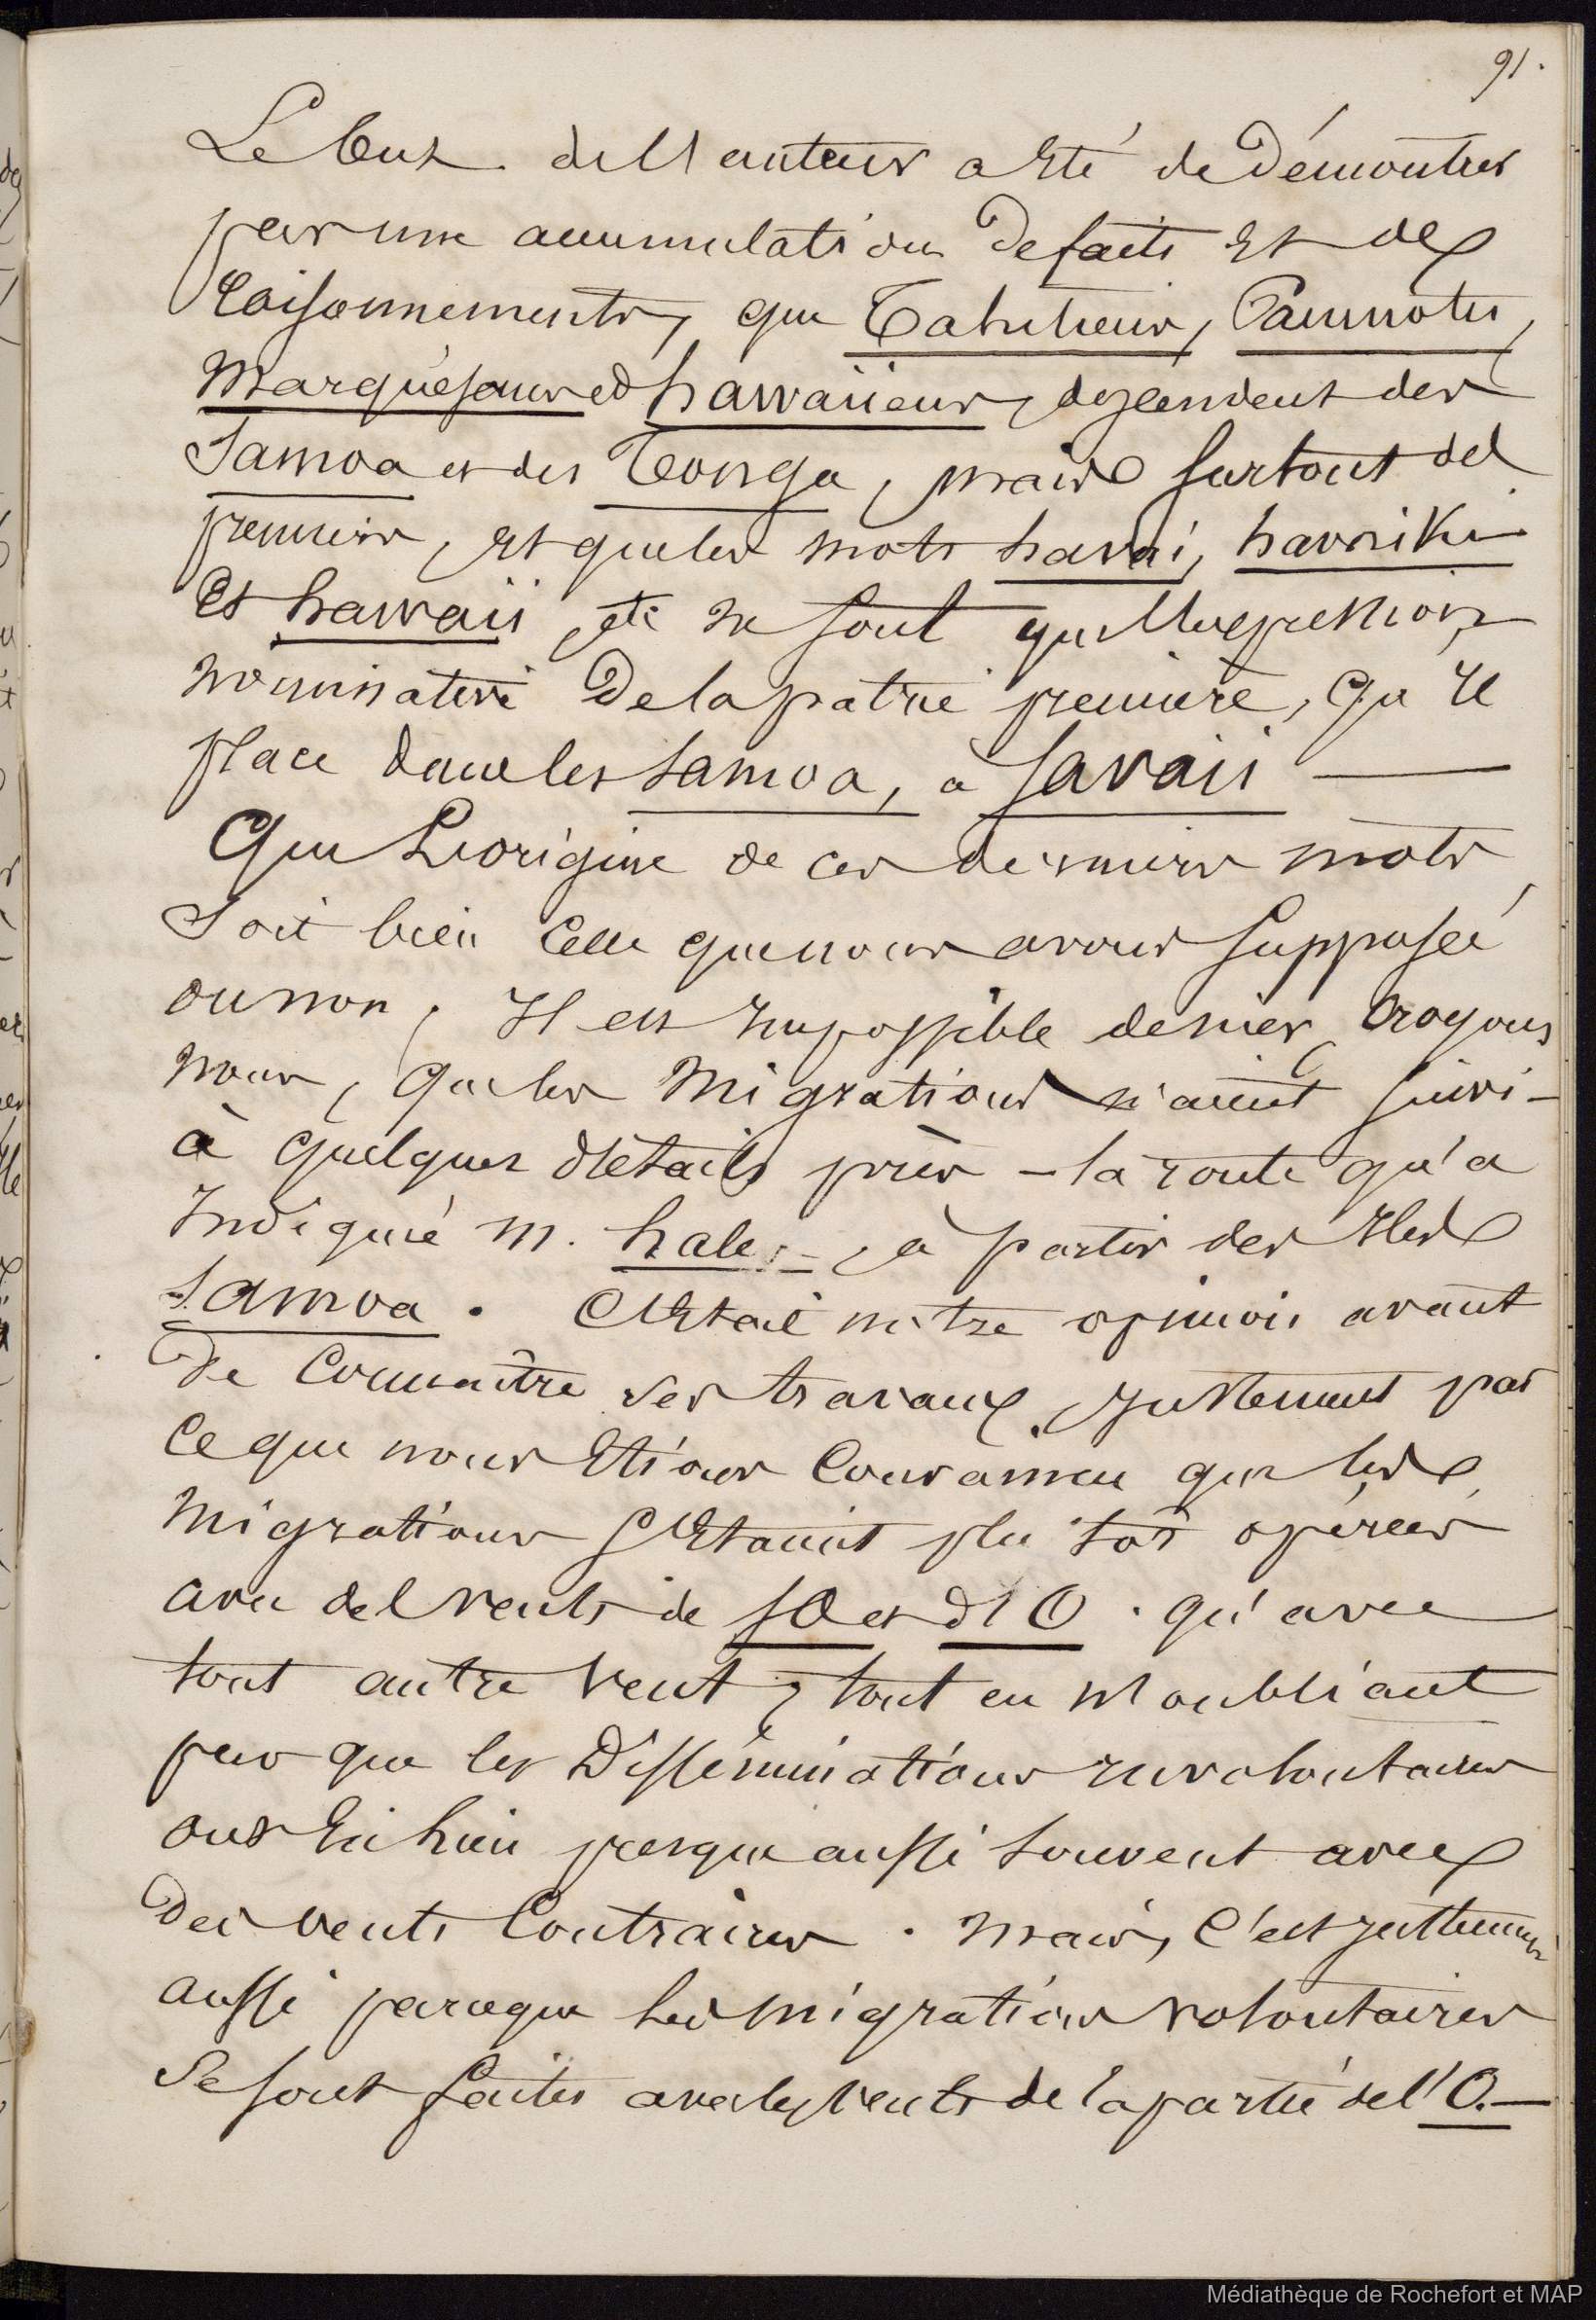 91.
Le but de l'auteur a été de démontrer
par une accumulation de faits et de
raisonnements, que Tahitiens, Paumotus,
Marquésans et hawaiiens, descendent des
Samoa et des Tonga, mais surtout des
premiers, et que les mots havai, havaiki
et hawaii, etc ne sont qu'une expression
nominative de la patrie première, qu'il
place dans les Samoa, à Savaii —
Que l'origine de ces derniers mots
soit bien celle que nous avons supposée
ou non, il est impossible de nier, croyons
nous, que les migrations n'aient suivi -
à quelques détails près - la route qu'a
indiqué M. hale, à partir des Iles
Samoa. C'était notre opinion avant
de connaître ses travaux, justement par
ce que nous étions convaincu que les
migrations s'étaient plu tôt opérées
avec des vents de SO et d'O. qu'avec
tout autre vent, tout en n'oubliant
pas que les disséminations involontaires
ont eu lieu presque aussi souvent avec
des vents contraires. Mais, c'est justement
aussi parceque les migrations volontaires
se sont faites avec les vents de la partie de l'O. —
Médiathèque de Rochefort et MAP